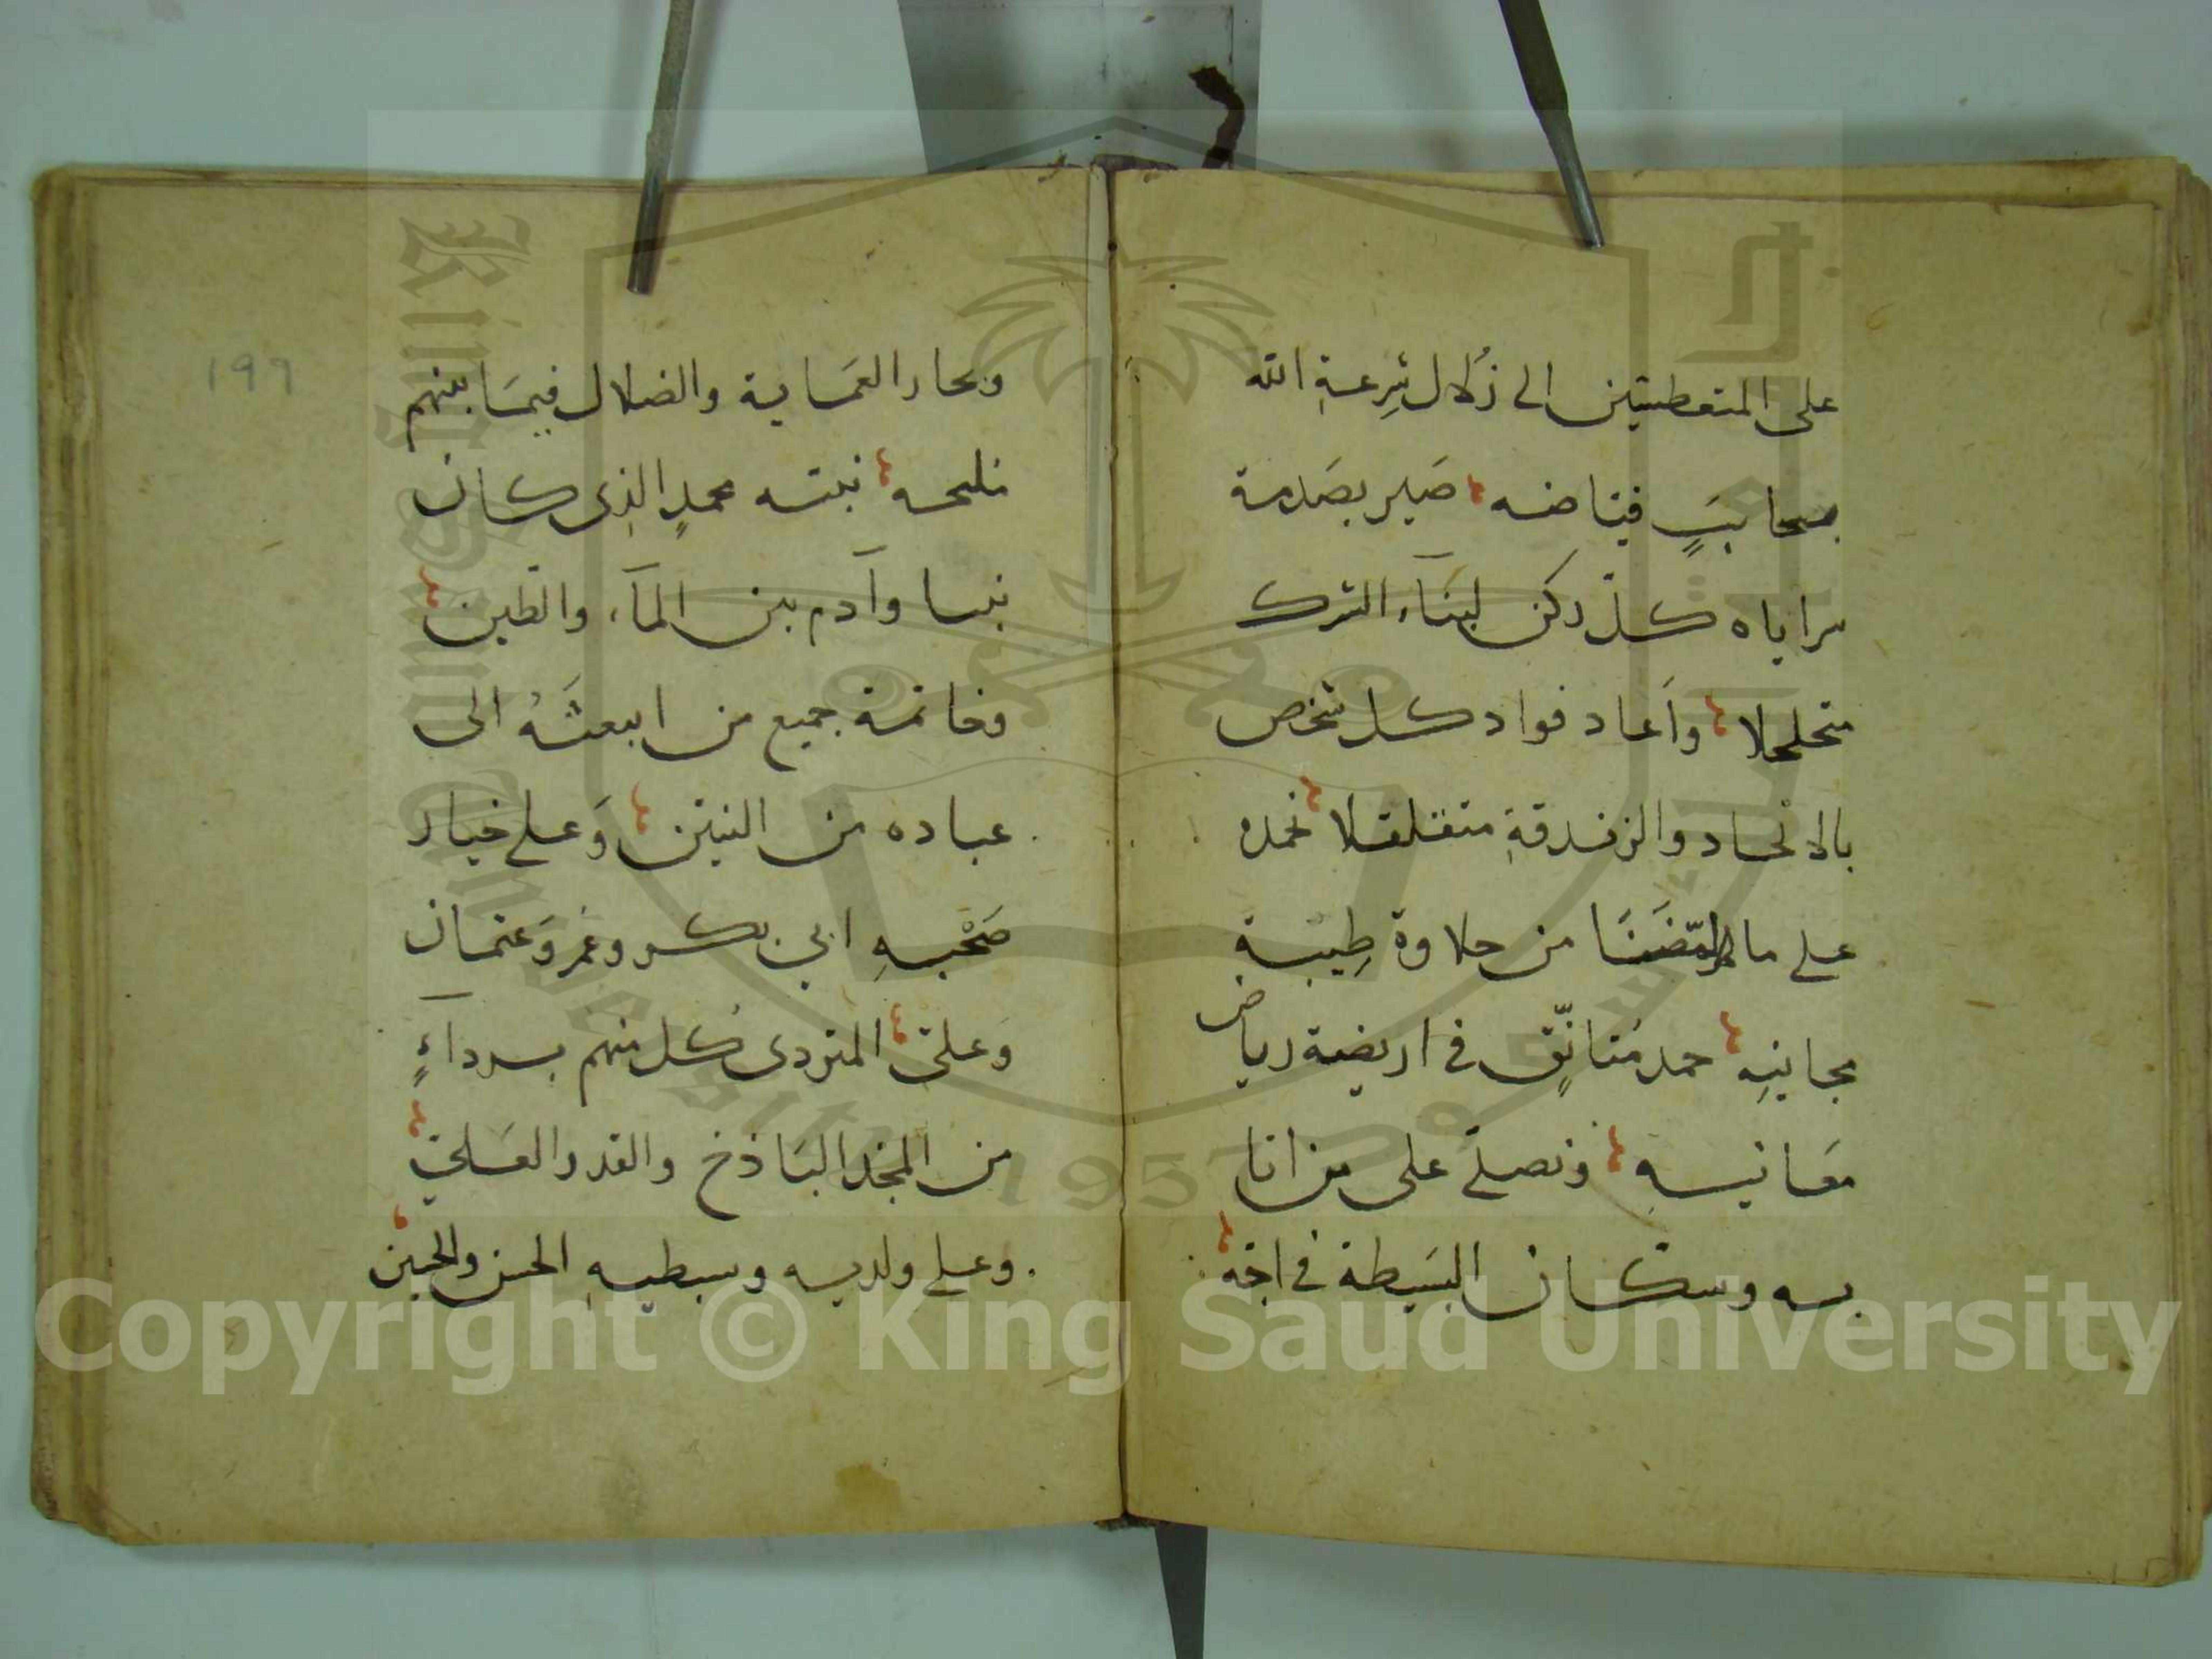 على المتعطشين الى زُلال شِرعةِ الله
سحائبٍ فياضه صير بصَدمة
سراياه كلّ ركن لبنَآء الشرك
متخلخلا وأعاد فواد كل شخص
بالالحاد والزندقةِ متقلقلا نحمده
على ما من حلاوة طيبة
مجانيهِ حمد مُتانّقٍ في اريضية رياض
مَعانيه ونصلّي على من اتا
به وسكان البَسيطة في
وبحار العمَاية والضلال فيمَا بينهم
نبيّه محمدٍ الذِى كان
نبيا وآدم بين المآء والطّين
وخاتمة جميع من ابعثَهُ الى
عباده من النبيّن وَعلى خيار
صَحْبهِ ابي بكر وعُمر وَعثمان
وَعلىّ المتردى كُل منهم برداءٍ
من المجد البَاذخ والقدر العَليّ
وعلى ولديه وسبطيهِ الحسن والحسين
١٩٦
1957
King Saud University
Copyright © King Saud University